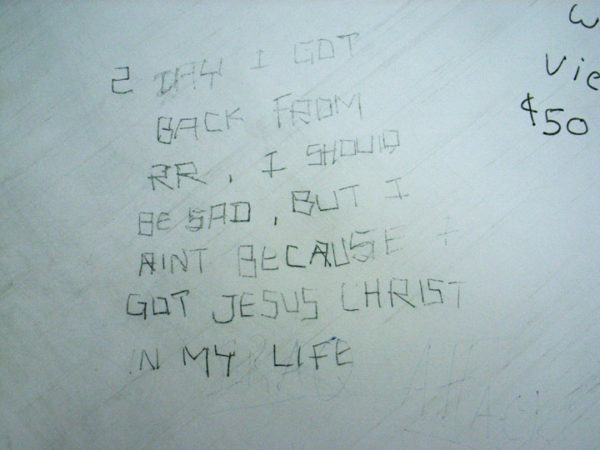 2 DAY I GOT
BACK FROM
RR, I SHOULD
BE SAD, BUT I
AINT BECAUSE I
GOT JESUS CHRIST
IN MY LIFE
W
Vie
$50